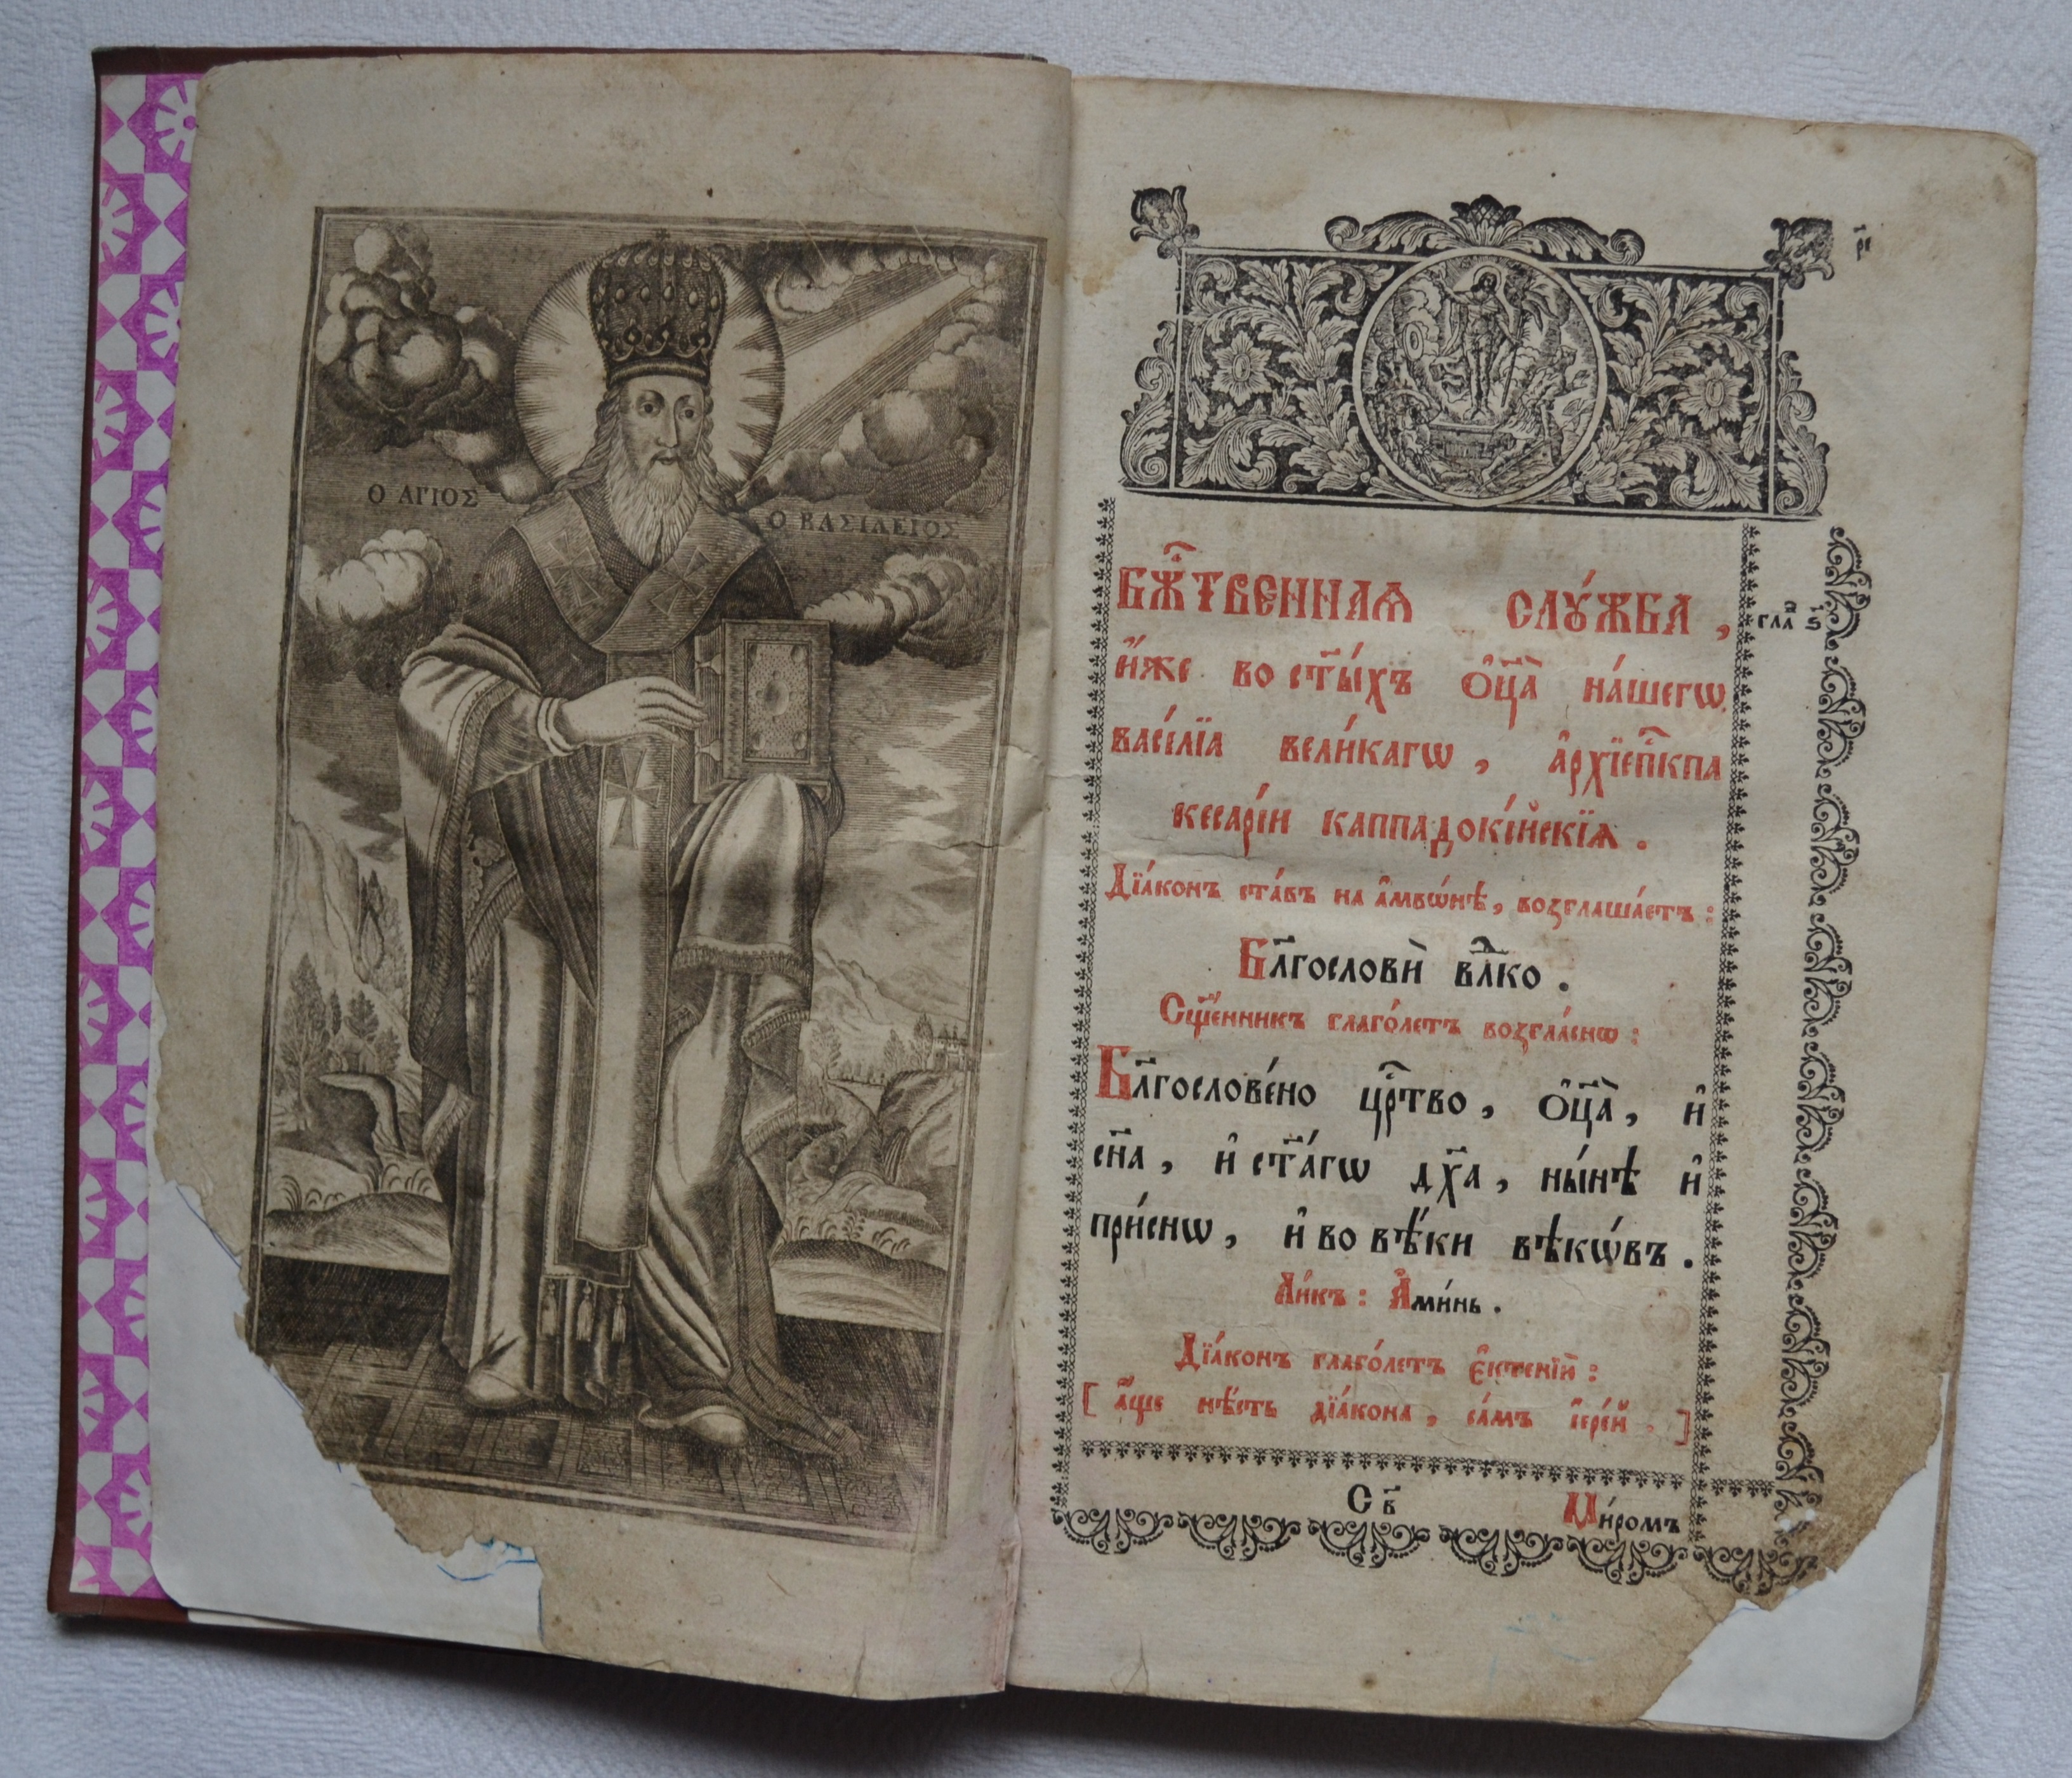 Ο ΑΓΙΟΣ
Ο ΒΑΣΙΛΕΙΟΣ
Бж҃твеннаѧ слꙋ́жба,
гла 5
и҆́же во ст҃ы́хъ ѻ҆ц҃а̀ на́шегѡ
васі́лїа вели́кагѡ, а҆рхїепⷭ҇кпа
кесарі́и каппадокі́йскїѧ.
Дїа́конъ ста́въ на а҆мвѡ́нѣ, возглаша́етъ:
Бл҃гословѝ влⷣко.
Сщ҃е́нникъ глаго́летъ возгла́снѡ:
Бл҃гослове́но црⷭ҇тво, ѻ҆ц҃а̀, и҆
сн҃а, и҆ ст҃а́гѡ дх҃а, ны́нѣ и҆
при́снѡ, и҆ во вѣ́ки вѣкѡ́въ.
Ли́къ: А҆ми́нь.
Дїа́конъ глаго́летъ є҆ктенїй:
[ а҆́ще нѣ́сть дїа́кона, са́мъ і҆ере́й. ]
С в҃
Ми́ромъ